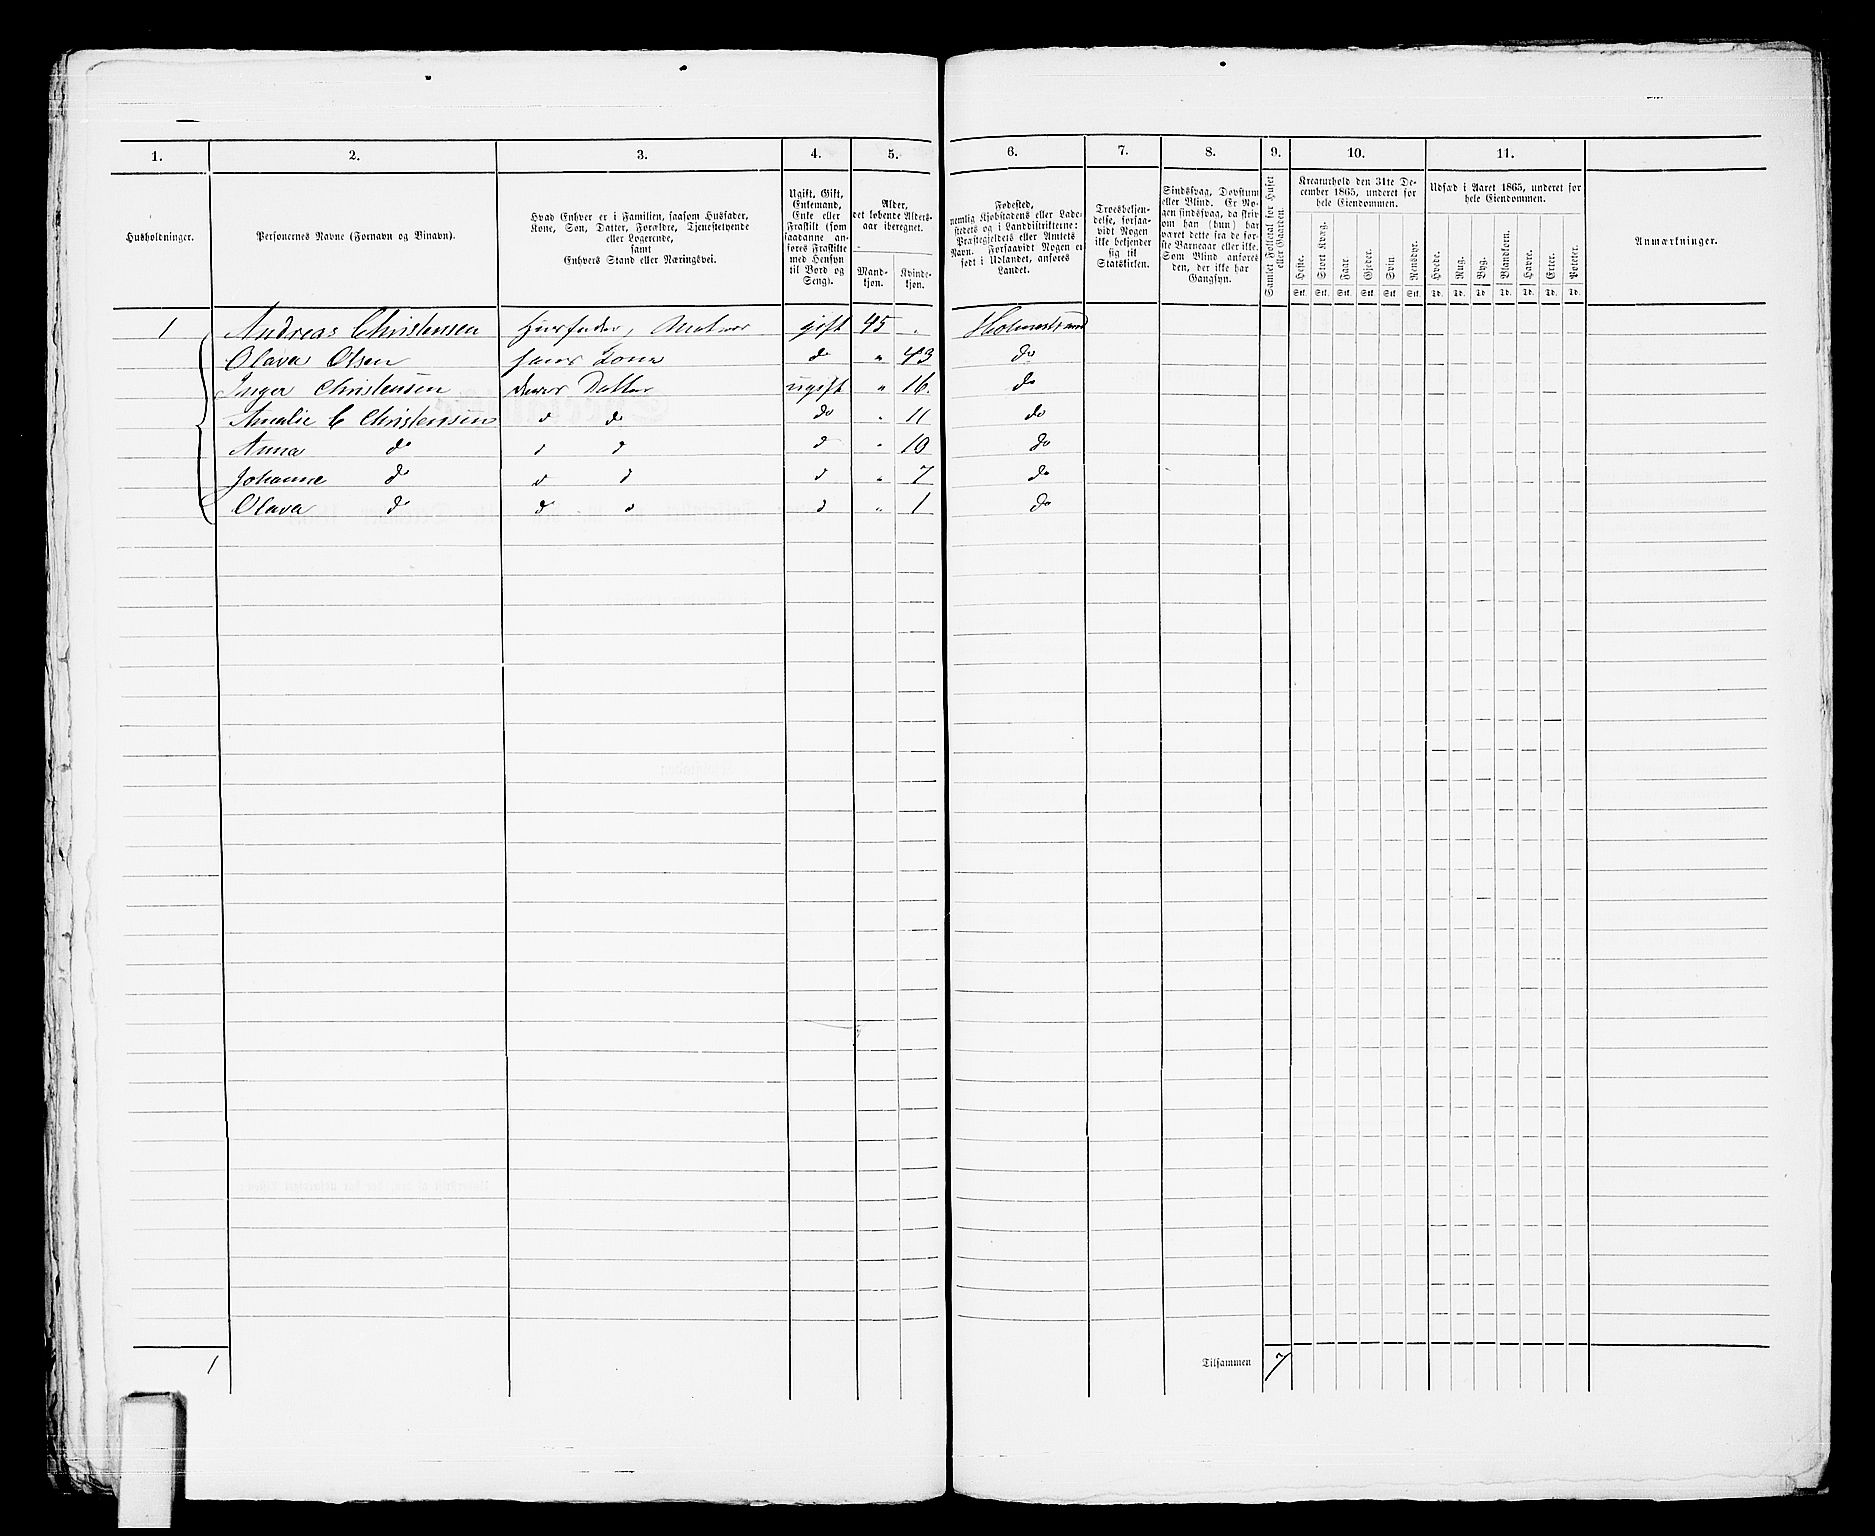 1. 2. 3. 4. 5. 6. 7. 8. 9. 10. 11.
Husholdninger.
Personernes Navne (Fornavn og Binavn).
Hvad Enhver er i Familien, saasom Husfader,
Kone, Søn, Datter, Forældre, Tjenestetyende
eller Logerende,
samt
Enhvers Stand eller Næringsvei.
Ugift, Gift,
Enkemand,
Enke eller
Fraskilt (som
saadanne an-
føres Fraskilte
med Hensyn
til Bord og
Seng).
Alder,
det løbende Alders-
aar iberegnet.
Mand-
kjøn.
Kvinde-
kjøn.
Fødested,
nemlig Kjøbstadens eller Lade-
stedets og i Landdistrikterne:
Præstegjeldets eller Amtets
Navn. Forsaavidt Nogen er
født i Udlandet, anføres
Landet.
Troesbekjen-
delse, forsaa-
vidt Nogen
ikke bekjender
sig til
Statskirken.
Sindssvag, Døvstum
eller Blind. Er No-
gen sindssvag, da skriv
om han (hun) har
været dette fra de før-
ste Barneaar eller ikke.
Som Blind anføres
den, der ikke har
Gangsyn.
Samlet Folketal for Huset
eller Gaarden.
Kreaturhold den 31te De-
cember 1865, underet for
hele Eiendommen.
Heste. Stort Kvæg. Faar. Gjeder. Svin. Rensdyr.
Stk. Stk. Stk. Stk. Stk. Stk.
Udsæd i Aaret 1865, underet for
hele Eiendommen.
Hvede. Rug. Byg. Blandkorn. Havre. Erter. Poteter.
Td. Td. Td. Td. Td. Td. Td.
Anmærkninger.
1 Andreas Christensen Huusfader, Matros gift 45 . Holmestrand
Olava Olsen hans Kone do " 43 do
Inger Christensen deres Datter ugift " 16. do
Amalie C Christensen d do do " 11 do
Anna do d d d " 10 do
Johanne do d d d " 7 do
Olava do d d d " 1 do
1 Tilsammen 7